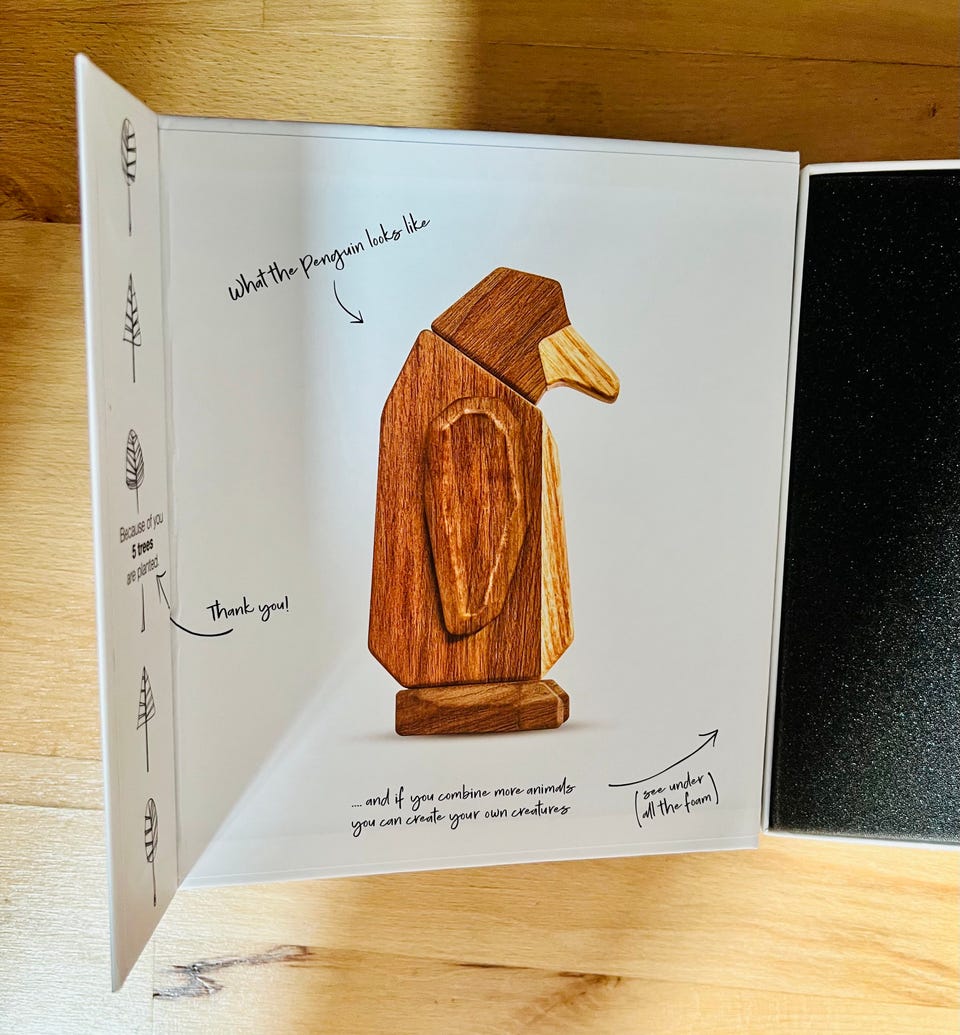 What the Penguin looks like
Because of you
5 trees
are planted.
Thank you!
.... and if you combine more animals
you can create your own creatures
(see under
all the foam)